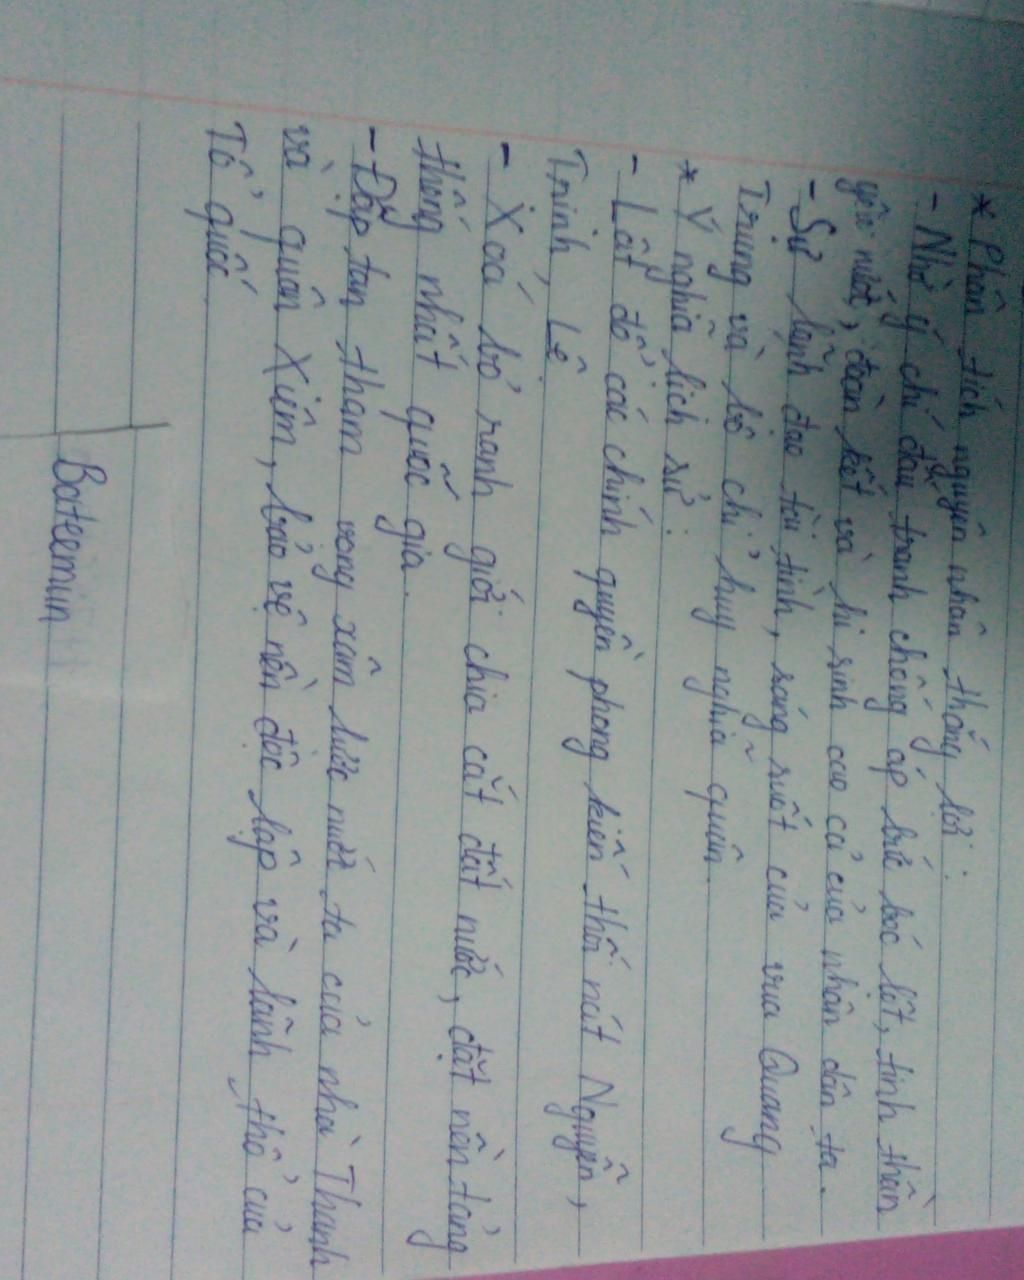 * Phân tích nguyên nhân thắng lợi :
- Nhờ ý chí đấu tranh chống áp bức bóc lột, tinh thần
yêu nước, đoàn kết và hi sinh cao cả của nhân dân ta.
- Sự lãnh đạo tài tình, sáng suốt của vua Quang
Trung và bộ chỉ huy nghĩa quân.
* Ý nghĩa lịch sử :
- Lật đổ các chính quyền phong kiến thối nát Nguyễn,
Trịnh, Lê
- Xoá bỏ ranh giới chia cắt đất nước, đặt nền tảng
thống nhất quốc gia.
- Đập tan tham vọng xâm lược nước ta của nhà Thanh
và quân Xiêm, bảo vệ nền độc lập và lãnh thổ của
Tổ quốc.
Bateemun